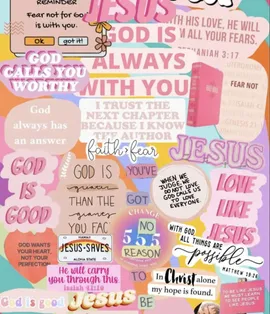 REMINDER
Fear not for God
is with you.
OK
got it!
JESUS
WITH HIS LOVE, HE WILL
ALL YOUR FEARS.
ZEPHANIAH 3:17
GOD IS
ALWAYS
WITH YOU
GOD
CALLS YOU
WORTHY
FEAR NOT
I TRUST THE
NEXT CHAPTER
BECAUSE I KNOW
THE AUTHOR
God
always has
an answer
faith
fear
JESUS
GOD
IS
GOOD
GOD IS
greater
THAN THE
YOU FAC
YOU'VE
GOT
WHEN WE
JUDGE, WE
DO NOT LOVE.
GOD CALLS US
TO LOVE
EVERYONE.
LOVE
LIKE
JESUS
CHANGE
NO
555
REASON
TO
BE
GOD WANTS
YOUR HEART,
NOT YOUR
PERFECTION
JESUS-SAVES
ALOHA STATE
WITH GOD
ALL THINGS ARE
possible
MATTHEW 19:26
He will carry
you through this
In Christ alone
my hope is found.
God is good
Jesus
TO BE LIKE JESUS